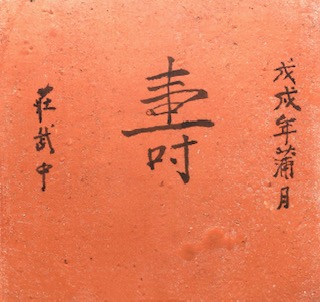 戊戌年蒲月
壽
莊武中